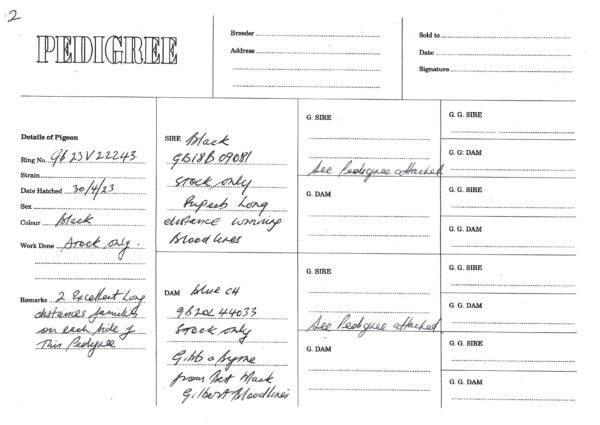 2
PEDIGREE
Breeder
Address
Sold to
Date
Signature
Details of Pigeon
Ring No. GB 23 V 22243
Strain
Date Hatched 30/4/23
Sex
Colour Black
Work Done Stock only.
Remarks 2 Excellent Long
distances families
on each side of
This Pedigree
SIRE Black
GB18B 09081
Stock only
Superb Long
distance winning
Bloodlines
DAM Blue CH
GB20L 44033
Stock only
Gibb o Byrne
from Bert Mark
Gilbert Bloodlines
G. SIRE
See Pedigree attached
G. DAM
G. SIRE
See Pedigree attached
G. DAM
G. G. SIRE
G. G. DAM
G. G. SIRE
G. G. DAM
G. G. SIRE
G. G. DAM
G. G. SIRE
G. G. DAM